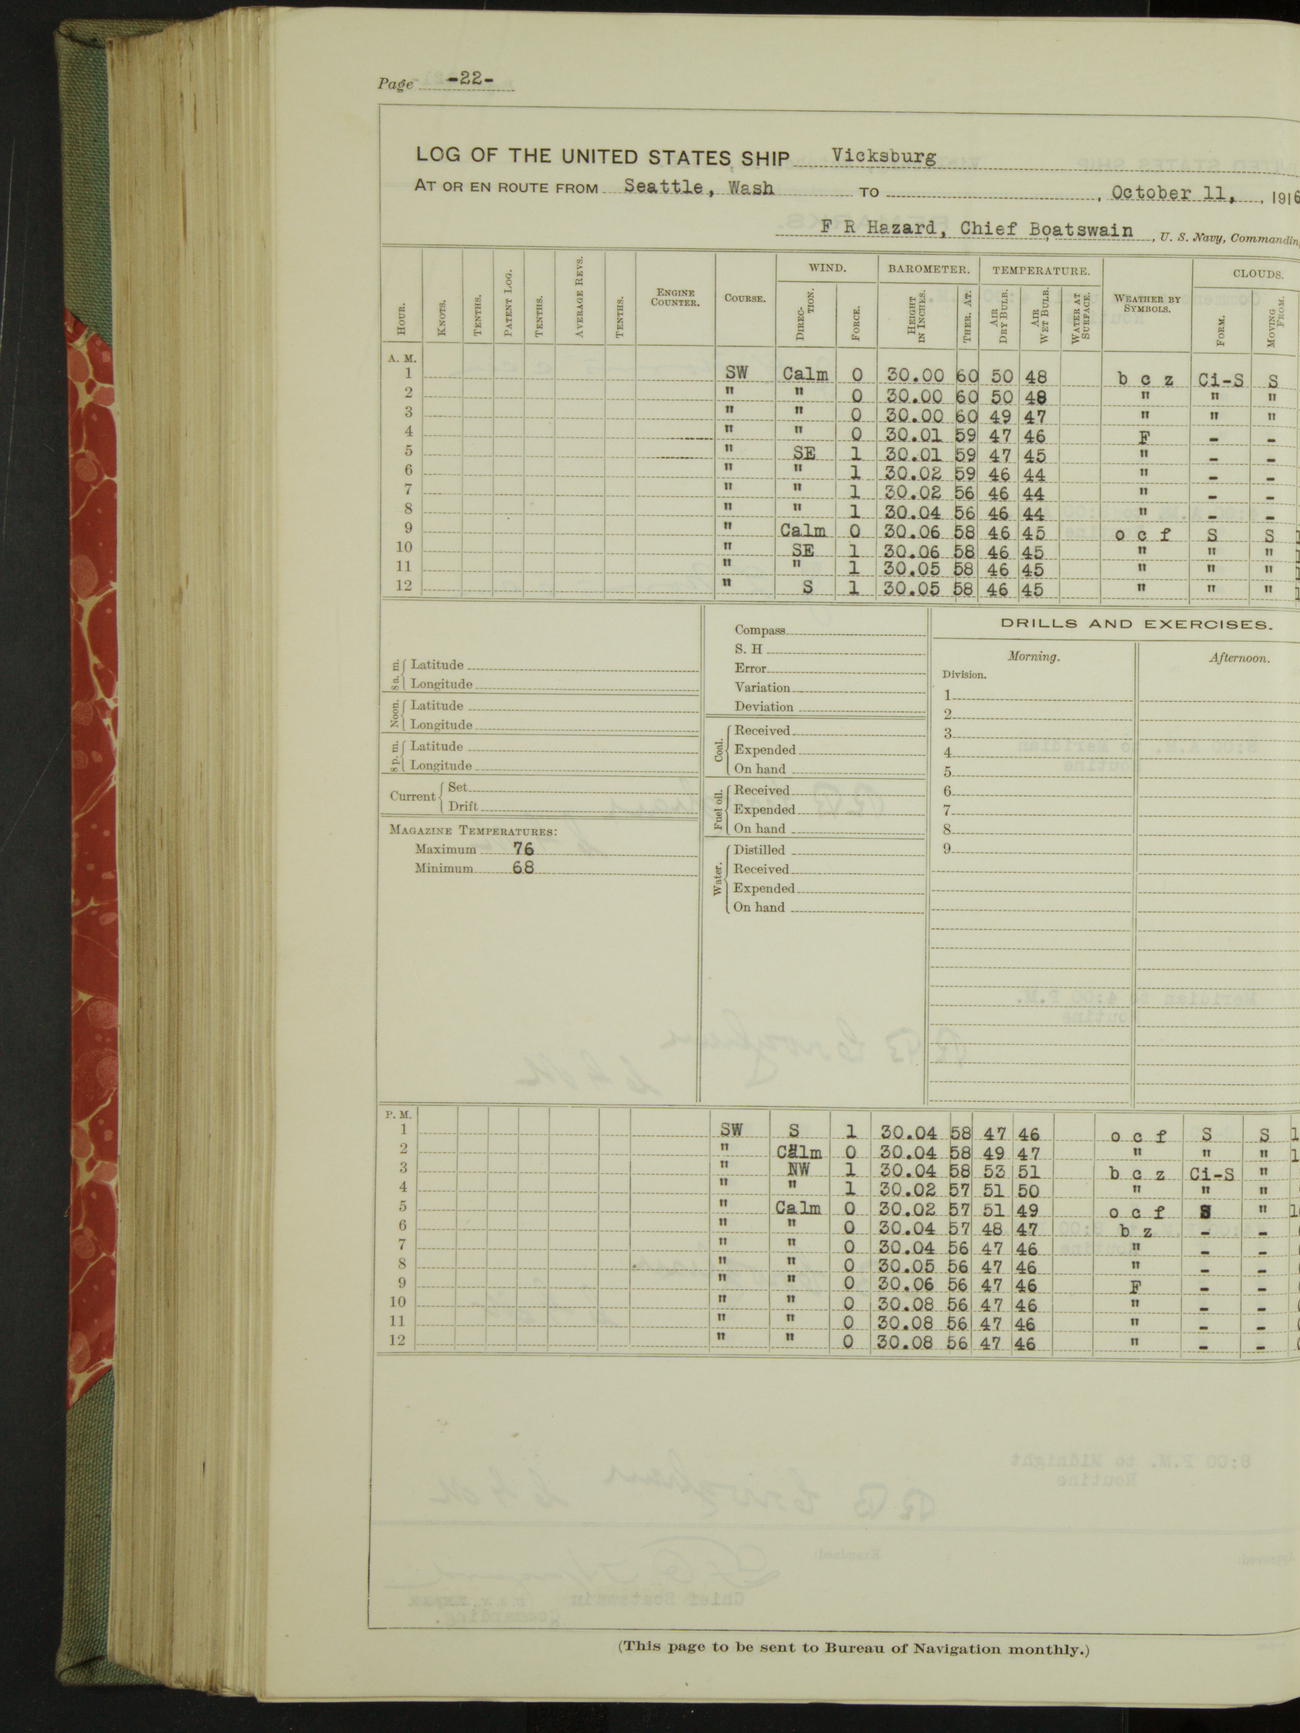 Page -22-
LOG OF THE UNITED STATES SHIP Vicksburg
AT OR EN ROUTE FROM Seattle, Wash TO , October 11, , 1916
F R Hazard, Chief Boatswain , U. S. Navy, Commandin
WIND. BAROMETER. TEMPERATURE. CLOUDS.
HOUR. KNOTS. TENTHS. PATENT LOG. TENTHS. AVERAGE REVS. TENTHS. ENGINE COUNTER. COURSE. DIREC-TION. FORCE. HEIGHT IN INCHES. THER. AT. AIR DRY BULB. AIR WET BULB. WATER AT SURFACE. WEATHER BY SYMBOLS. FORM. MOVING FROM.
A. M.
1 SW Calm 0 30.00 60 50 48 b c z Ci-S S
2 " " 0 30.00 60 50 48 " " "
3 " " 0 30.00 60 49 47 " " "
4 " " 0 30.01 59 47 46 F - -
5 " SE 1 30.01 59 47 45 " - -
6 " " 1 30.02 59 46 44 " - -
7 " " 1 30.02 56 46 44 " - -
8 " " 1 30.04 56 46 44 " - -
9 " Calm 0 30.06 58 46 45 o c f S S
10 " SE 1 30.06 58 46 45 " " "
11 " " 1 30.05 58 46 45 " " "
12 " S 1 30.05 58 46 45 " " "
8 a. m. Latitude
Longitude
Noon. Latitude
Longitude
8 p. m. Latitude
Longitude
Current Set
Drift
MAGAZINE TEMPERATURES:
Maximum 76
Minimum 68
Compass
S. H
Error
Variation
Deviation
Coal. Received
Expended
On hand
Fuel oil. Received
Expended
On hand
Water. Distilled
Received
Expended
On hand
DRILLS AND EXERCISES.
Morning. Afternoon.
Division.
1
2
3
4
5
6
7
8
9
P. M.
1 SW S 1 30.04 58 47 46 o c f S S
2 " Calm 0 30.04 58 49 47 " " "
3 " NW 1 30.04 58 53 51 b c z Ci-S "
4 " " 1 30.02 57 51 50 " " "
5 " Calm 0 30.02 57 51 49 o c f S "
6 " " 0 30.04 57 48 47 b z - -
7 " " 0 30.04 56 47 46 " - -
8 " " 0 30.05 56 47 46 " - -
9 " " 0 30.06 56 47 46 F - -
10 " " 0 30.08 56 47 46 " - -
11 " " 0 30.08 56 47 46 " - -
12 " " 0 30.08 56 47 46 " - -
(This page to be sent to Bureau of Navigation monthly.)